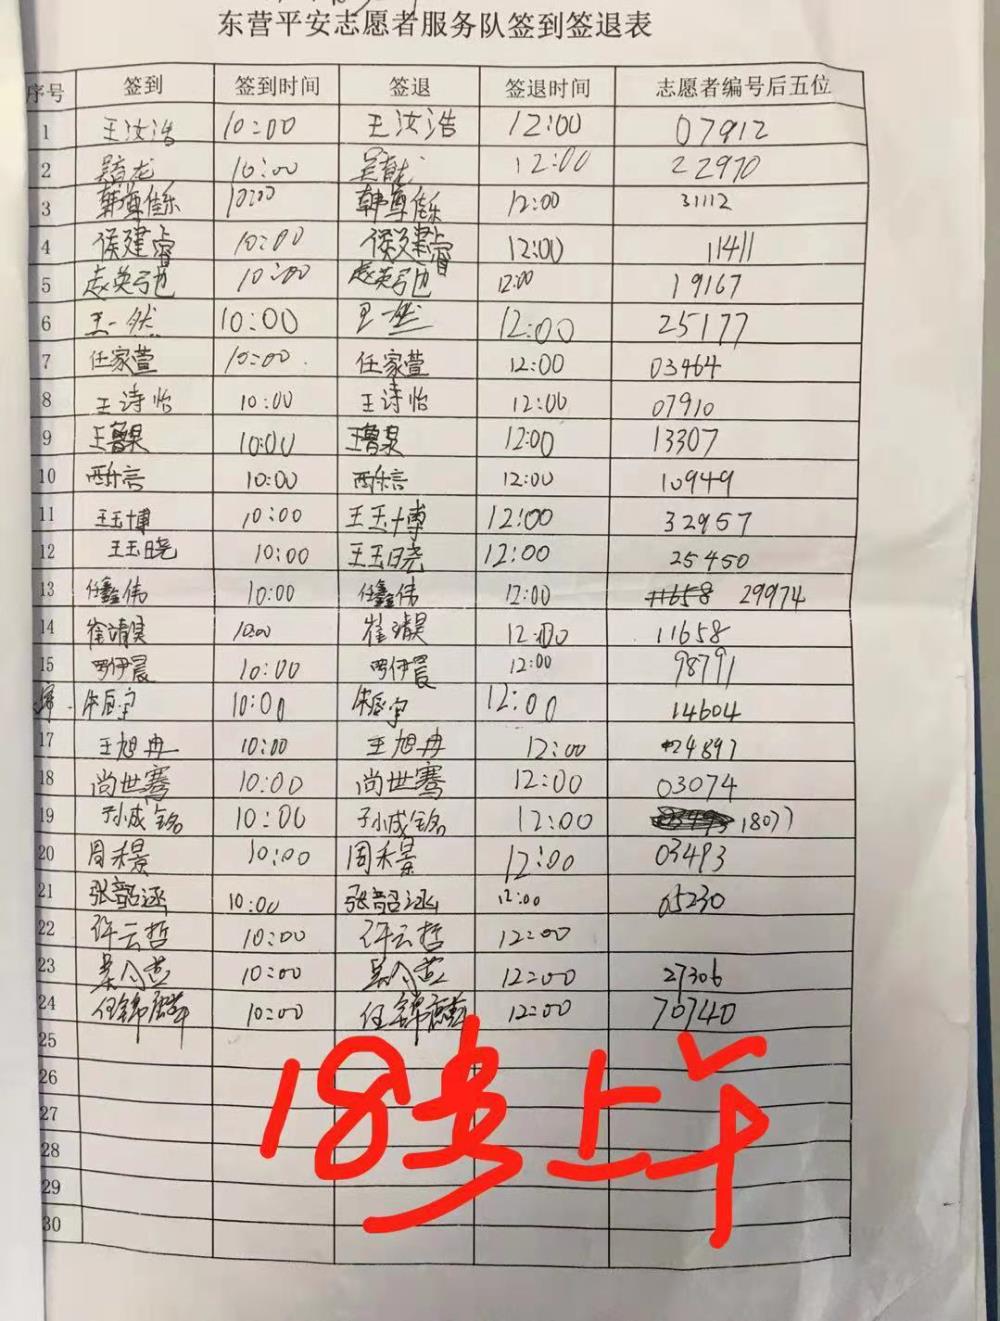 东营平安志愿者服务队签到签退表
序号 签到 签到时间 签退 签退时间 志愿者编号后五位
1 王汝浩 10:00 王汝浩 12:00 07912
2 10:00 12:00 22970
3 韩尊佳乐 10:00 韩尊佳乐 12:00 31112
4 侯建睿 10:00 侯建睿 12:00 11411
5 赵英弓也 10:00 赵英弓也 12:00 19167
6 王一然 10:00 王一然 12:00 25177
7 任家萱 10:00 任家萱 12:00 03464
8 王诗怡 10:00 王诗怡 12:00 07910
9 王鲁泉 10:00 王鲁泉 12:00 13307
10 10:00 12:00 10949
11 王玉博 10:00 王玉博 12:00 32957
12 王玉晓 10:00 王玉晓 12:00 25450
13 任鑫伟 10:00 任鑫伟 12:00 11658 29974
14 崔靖昊 10:00 崔靖昊 12:00 11658
15 罗伊晨 10:00 罗伊晨 12:00 98791
10:00 12:00 14604
17 王旭冉 10:00 王旭冉 12:00 24897
18 尚世骞 10:00 尚世骞 12:00 03074
19 孙成铭 10:00 孙成铭 12:00 18077
20 周禾景 10:00 周禾景 12:00 03493
21 张韶涵 10:00 张韶涵 12:00 05230
22 许云哲 10:00 许云哲 12:00
23 10:00 12:00 27306
24 任锦麟 10:00 任锦麟 12:00 70740
25
26
27
28
29
30
18号上午